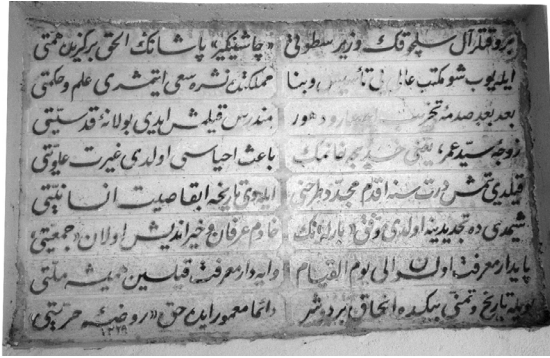 بر وقتلر آل سلجوقك وزیر سطوتی «چاشنیگیر» پاشانك الحق برگزیدن همتی
ایلیوب شو مكتب عالی تأسیس و بنا مملكتده نشره سعی ایتمشدی علم و حكمتی
بعد بعد صدمهٔ دهور مندرس قیلمش ایدی بو لانهٔ قدسیتی
زوجهٔ سید عمر، یعنی خدیجه خانمك باعث احیاسی اولدی غیرت علویتی
قیلدیرتمش درت سنه اقدم مجدد طرحنی ایلدی تاریخه ابقا صیت انسانیتی
شیمدی ده تجدیدینه اولدی وفق «بارله» نك خادم عرفان و خیر اندیش اولان «جمعیتی»
پایدار معرفت اولسون الی یوم القیام وایه دار معرفت قیلسین همیشه ملتی
بویله تاریخ و تمنی الحاق بر دوشر دائما معمور ایده حق «روضهٔ حریتی»
١٣٢٩